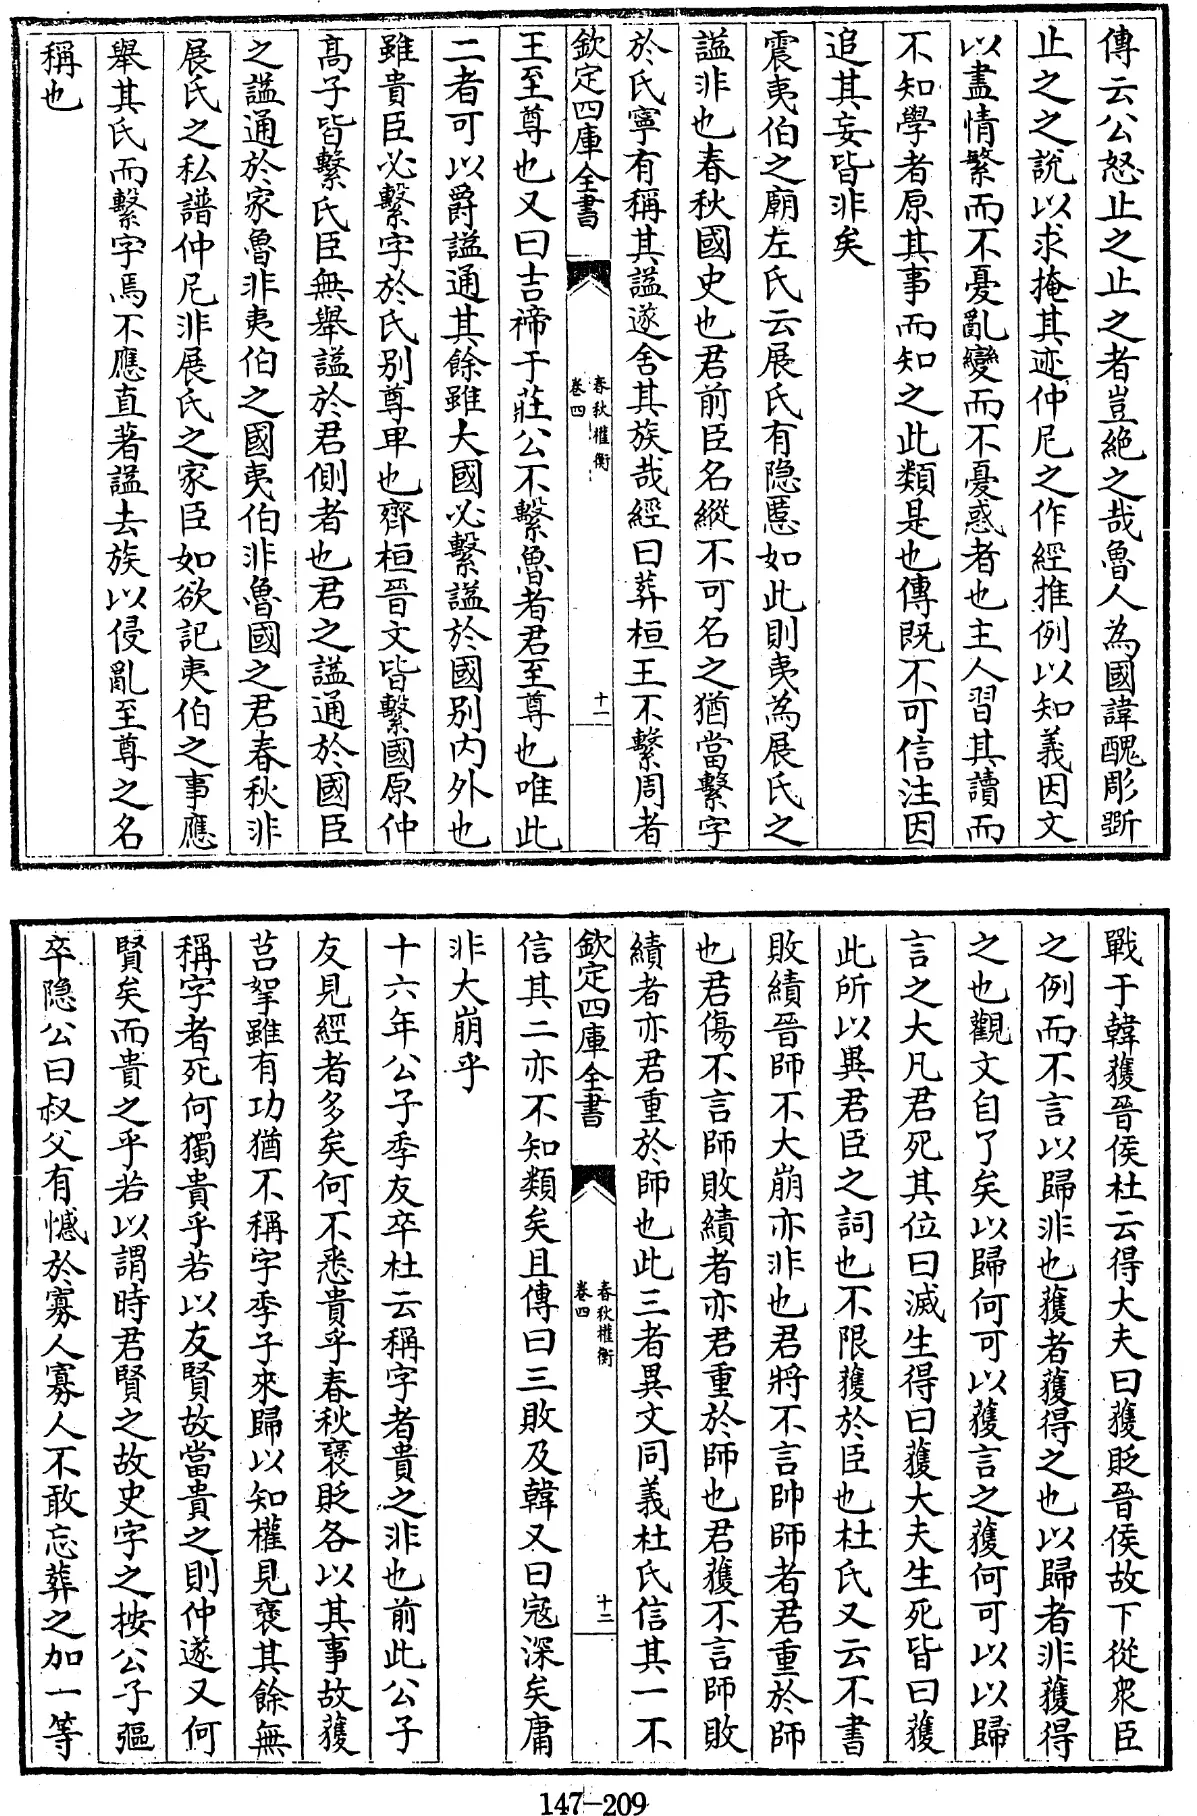 傳云公怒止之止之者豈絶之哉魯人為國諱醜彫斵
止之之說以求掩其迹仲尼之作經推例以知義因文
以盡情繁而不憂亂變而不憂惑者也主人習其讀而
不知學者原其事而知之此類是也傳既不可信注因
追其妄皆非矣
震夷伯之廟左氏云展氏有隠慝如此則夷為展氏之
謚非也春秋國史也君前臣名縱不可名之猶當繫字
於氏寧有稱其謚遂舍其族哉經曰葬桓王不繫周者
欽定四庫全書
春秋權衡
卷四
十一
王至尊也又曰吉禘于莊公不繫魯者君至尊也唯此
二者可以爵謚通其餘雖大國必繫謚於國别内外也
雖貴臣必繫字於氏别尊卑也齊桓晉文皆繫國原仲
高子皆繫氏臣無舉謚於君側者也君之謚通於國臣
之謚通於家魯非夷伯之國夷伯非魯國之君春秋非
展氏之私譜仲尼非展氏之家臣如欲記夷伯之事應
舉其氏而繫字焉不應直著謚去族以侵亂至尊之名
稱也
戰于韓獲晉侯杜云得大夫曰獲貶晉侯故下從衆臣
之例而不言以歸非也獲者獲得之也以歸者非獲得
之也觀文自了矣以歸何可以獲言之獲何可以以歸
言之大凡君死其位曰滅生得曰獲大夫生死皆曰獲
此所以異君臣之詞也不限獲於臣也杜氏又云不書
敗績晉師不大崩亦非也君將不言帥師者君重於師
也君傷不言師敗績者亦君重於師也君獲不言師敗
績者亦君重於師也此三者異文同義杜氏信其一不
欽定四庫全書
春秋權衡
卷四
十二
信其二亦不知類矣且傳曰三敗及韓又曰寇深矣庸
非大崩乎
十六年公子季友卒杜云稱字者貴之非也前此公子
友見經者多矣何不悉貴乎春秋褒貶各以其事故獲
莒挐雖有功猶不稱字季子來歸以知權見褒其餘無
稱字者死何獨貴乎若以友賢故當貴之則仲遂又何
賢矣而貴之乎若以謂時君賢之故史字之按公子彄
卒隠公曰叔父有憾於寡人寡人不敢忘葬之加一等
147-209